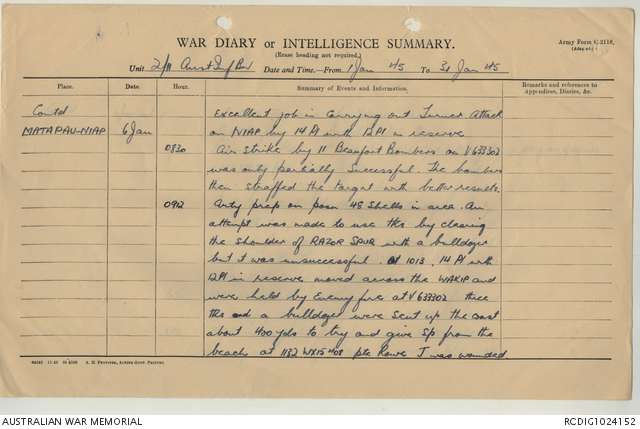 WAR DIARY OR INTELLIGENCE SUMMARY.
Army Form C.2118,
(Erase heading not required.)
Unit 2/11 Aust Inf Bn Date and Time—From 1 Jan 45 To 31 Jan 45
Place. Date. Hour. Summary of Events and Information. Remarks and references to Appendices, Diaries, &c.
Contd Excellent job in carrying out Attack
MATAPAU-NIAP 6 Jan on NIAP by 14 Pl with 12 Pl in reserve
0830 Air strike by 11 Beaufort Bombers on V633302
was only partially successful. The bombers
then straffed the target with better results.
0912 Arty prep on posn 48 shells in area. An
attempt was made to use tks by clearing
the shoulder of RAZOR SPUR with a bulldozer
but it was unsuccessful. At 1013, 14 Pl with
12 Pl in reserve moved across the WAKIP and
were held by Enemy fire at V633302 three
tks and a bulldozer were sent up the coast
about 400 yds to try and give Sp from the
beach at 1132 WX15408 Pte Rowe J was wounded.
AUSTRALIAN WAR MEMORIAL RCDIG1024152